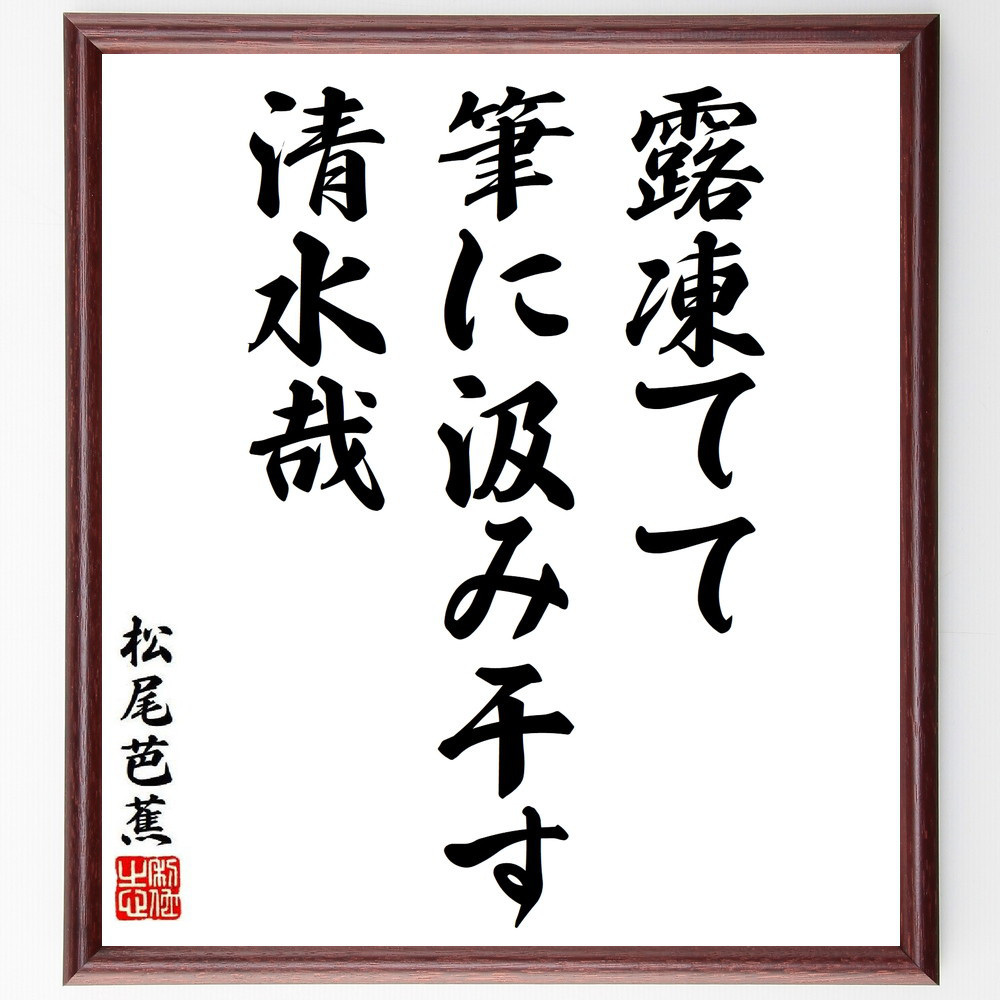 露凍てて
筆に汲み干す
清水哉
松尾芭蕉